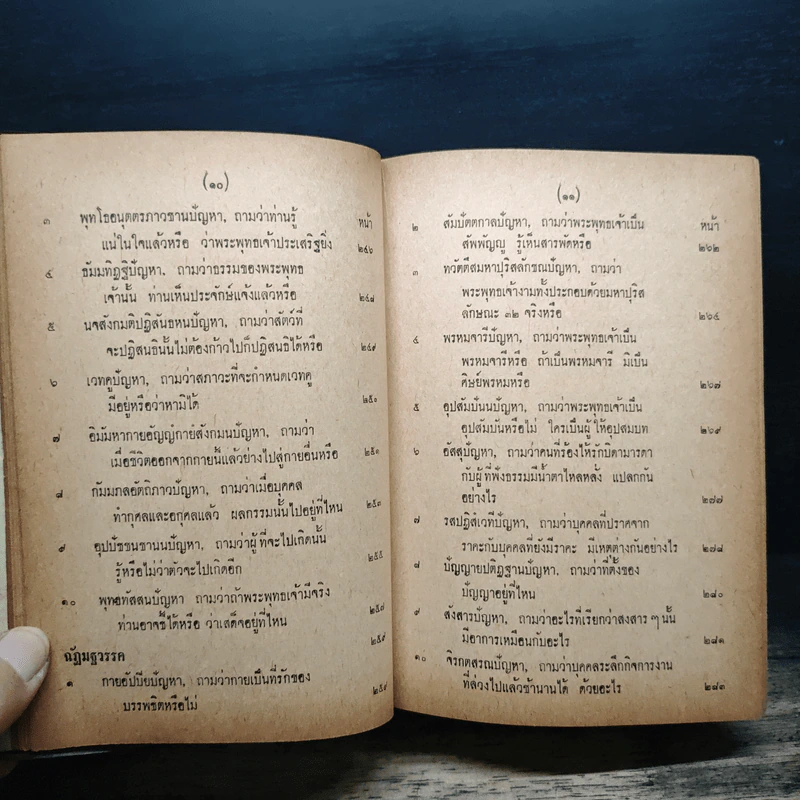 (๑๐)
หน้า
๓ พุทโธอนุตตรภาวชานปัญหา, ถามว่าท่านรู้
แน่ในใจแล้วหรือ ว่าพระพุทธเจ้าประเสริฐยิ่ง ๒๔๖
๔ ธัมมทิฏฐิปัญหา, ถามว่าธรรมของพระพุทธ
เจ้านั้น ท่านเห็นประจักษ์แจ้งแล้วหรือ ๒๔๘
๕ นจสังกมติปฏิสันธหนปัญหา, ถามว่าสัตว์ที่
จะปฏิสนธินั้นไม่ต้องก้าวไปก็ปฏิสนธิได้หรือ ๒๔๙
๖ เวทคูปัญหา, ถามว่าสภาวะที่จะกำหนดเวทคู
มีอยู่หรือว่าหามิได้ ๒๕๐
๗ อิมัมหากายอัญญํกายํสังกมนปัญหา, ถามว่า
เมื่อชีวิตออกจากกายนี้แล้วย่างไปสู่กายอื่นหรือ ๒๕๑
๘ กัมมกลอัตถิภาวปัญหา, ถามว่าเมื่อบุคคล
ทำกุศลและอกุศลแล้ว ผลกรรมนั้นไปอยู่ที่ไหน ๒๕๓
๙ อุปปัชชนชานนปัญหา, ถามว่าผู้ที่จะไปเกิดนั้น
รู้หรือไม่ว่าตัวจะไปเกิดอีก ๒๕๕
๑๐ พุทธทัสสนปัญหา ถามว่าถ้าพระพุทธเจ้ามีจริง
ท่านอาจชี้ได้หรือ ว่าเสด็จอยู่ที่ไหน ๒๕๗
ฉัฏฐมวรรค ๒๕๙
๑ กายอัปปิยปัญหา, ถามว่ากายเป็นที่รักของ
บรรพชิตหรือไม่ ๒๕๙
(๑๑)
หน้า
๒ สัมปัตตกาลปัญหา, ถามว่าพระพุทธเจ้าเป็น
สัพพัญญู รู้เห็นสารพัดหรือ ๒๖๒
๓ ทวัตตึสมหาปุริสลักขณปัญหา, ถามว่า
พระพุทธเจ้างามทั้งประกอบด้วยมหาปุริส
ลักษณะ ๓๒ จริงหรือ ๒๖๔
๔ พรหมจารีปัญหา, ถามว่าพระพุทธเจ้าเป็น
พรหมจารีหรือ ถ้าเป็นพรหมจารี มิเป็น
ศิษย์พรหมหรือ ๒๖๗
๕ อุปสัมปันนปัญหา, ถามว่าพระพุทธเจ้าเป็น
อุปสัมบันหรือไม่ ใครเป็นผู้ให้อุปสมบท ๒๖๙
๖ อัสสุปัญหา, ถามว่าคนที่ร้องไห้รักบิดามารดา
กับผู้ที่ฟังธรรมมีน้ำตาไหลหลั่ง แปลกกัน
อย่างไร ๒๗๗
๗ รสปฏิสํเวทีปัญหา, ถามว่าบุคคลที่ปราศจาก
ราคะกับบุคคลที่ยังมีราคะ มีเหตุต่างกันอย่างไร ๒๗๘
๘ ปัญญายปติฏฐานปัญหา, ถามว่าที่ตั้งของ
ปัญญาอยู่ที่ไหน ๒๘๐
๙ สังสารปัญหา, ถามว่าอะไรที่เรียกว่าสงสาร ๆ นั้น
มีอาการเหมือนกับอะไร ๒๘๑
๑๐ จิรกตสรณปัญหา, ถามว่าบุคคลระลึกกิจการงาน
ที่ล่วงไปแล้วช้านานได้ ด้วยอะไร ๒๘๓